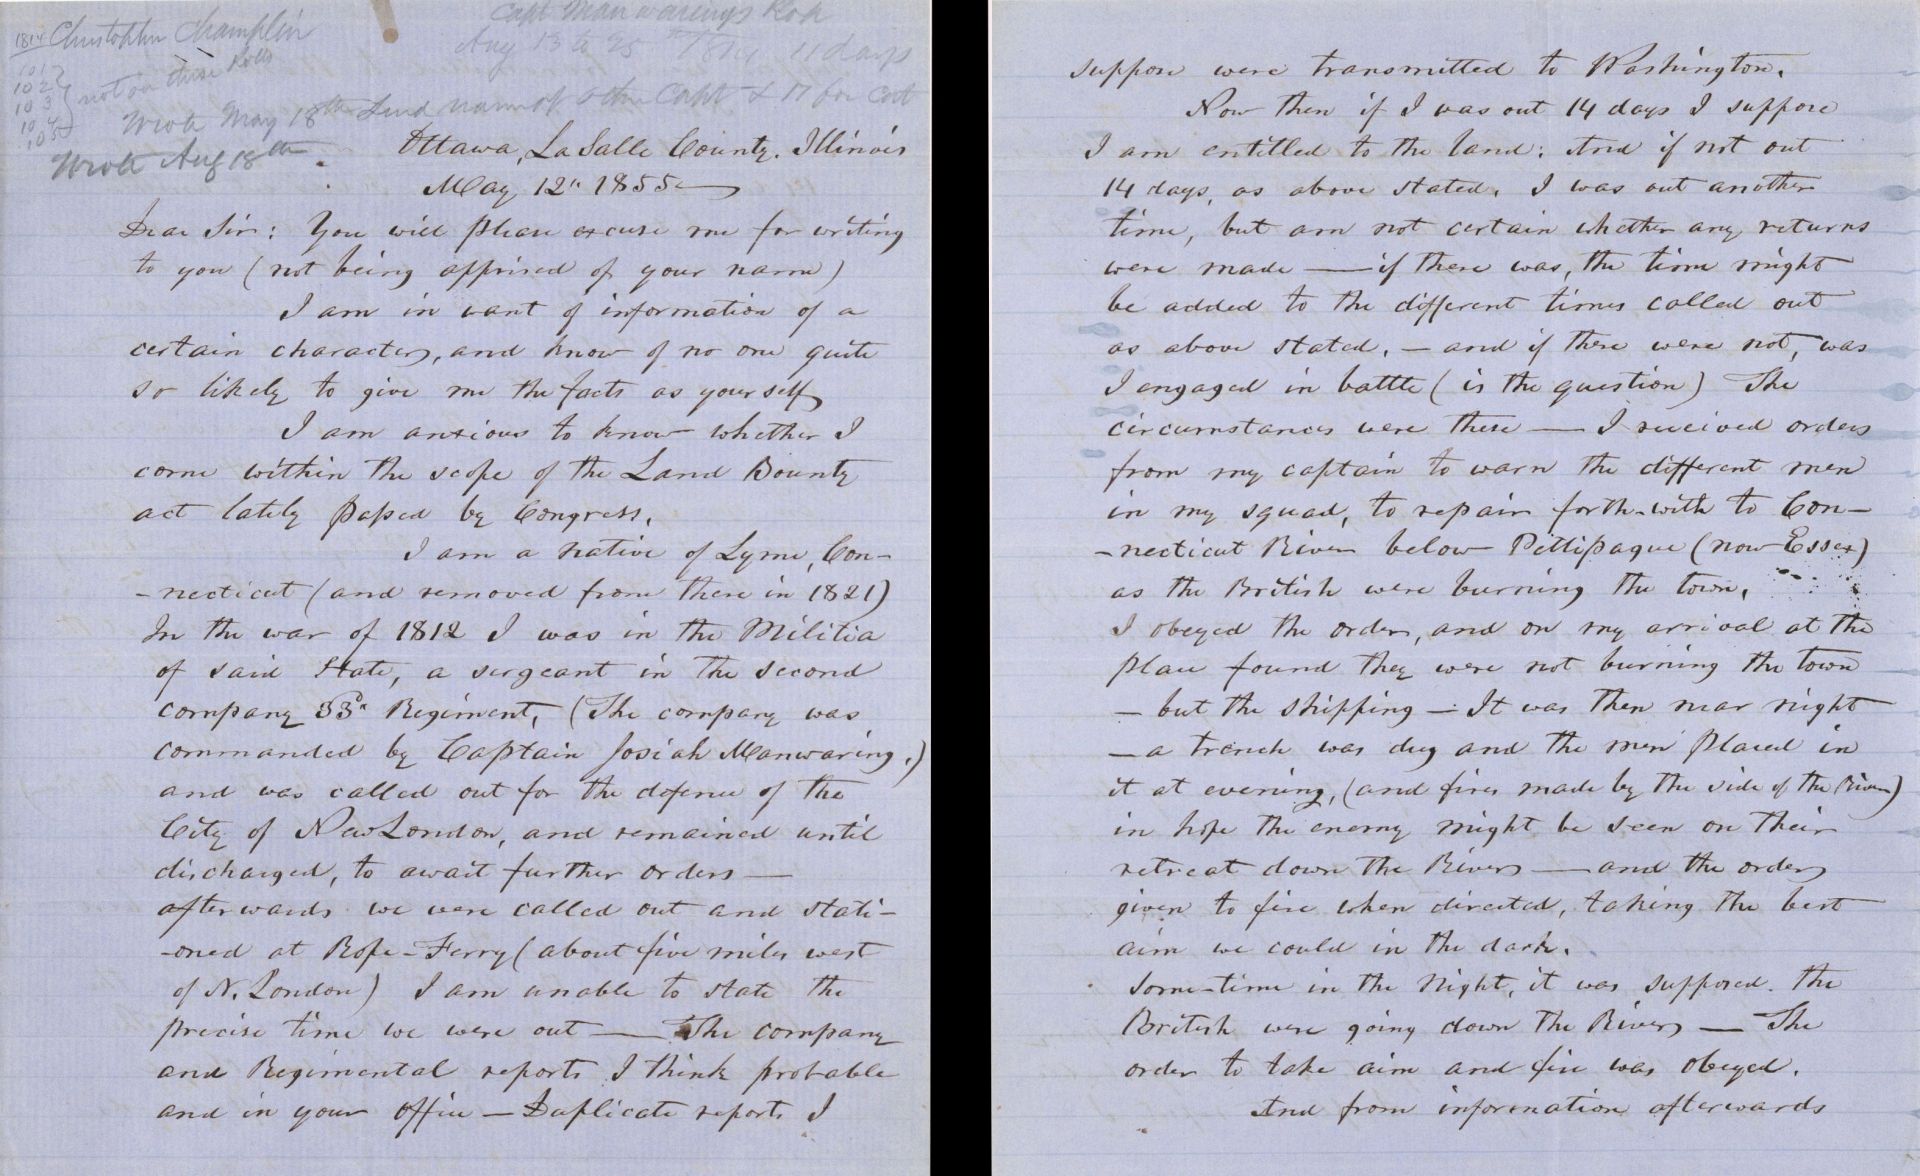 Capt Manwarings Roll
Aug 13 to 25th 1814 11 days
1814 Christopher Champlin
101
102
103
104
105
not on these Rolls
Wrote May 18th Send name of other Capt
Wrote Aug 18th
Ottawa, La Salle County. Illinois
May 12" 1855
Dear Sir: You will please excuse me for writing
to you (not being apprised of your name)
I am in want of information of a
certain character, and know of no one quite
so likely to give me the facts as yourself
I am anxious to know whether I
come within the scope of the Land Bounty
act lately passed by Congress.
I am a native of Lyme, Con-
-necticut (and removed from there in 1821)
In the war of 1812 I was in the Militia
of said State, a sergeant in the second
company 33d Regiment, (The company was
commanded by Captain Josiah Manwaring.)
and was called out for the defence of the
City of New London, and remained until
discharged, to await further orders —
afterwards we were called out and stati-
-oned at Rope-Ferry (about five miles west
of N. London) I am unable to state the
precise time we were out — The company
and Regimental reports I think probable
and in your office — Duplicate reports I
suppose were transmitted to Washington.
Now then if I was out 14 days I suppose
I am entitled to the land: And if not out
14 days, as above stated. I was out another
time, but am not certain whether any returns
were made — if there was, the time might
be added to the different times called out
as above stated. — and if there were not, was
I engaged in battle (is the question) The
circumstances were these — I received orders
from my captain to warn the different men
in my squad, to repair forth-with to Con-
-necticut River below Pettipague (now Essex)
as the British were burning the town.
I obeyed the order, and on my arrival at the
place found they were not burning the town
— but the shipping — It was then near night
— a trench was dug and the men placed in
it at evening, (and fires made by the side of the River)
in hope the enemy might be seen on their
retreat down the River — and the order
given to fire when directed, taking the best
aim we could in the dark.
Some-time in the night, it was supposed. the
British were going down the River — The
order to take aim and fire was obeyed.
And from information afterwards